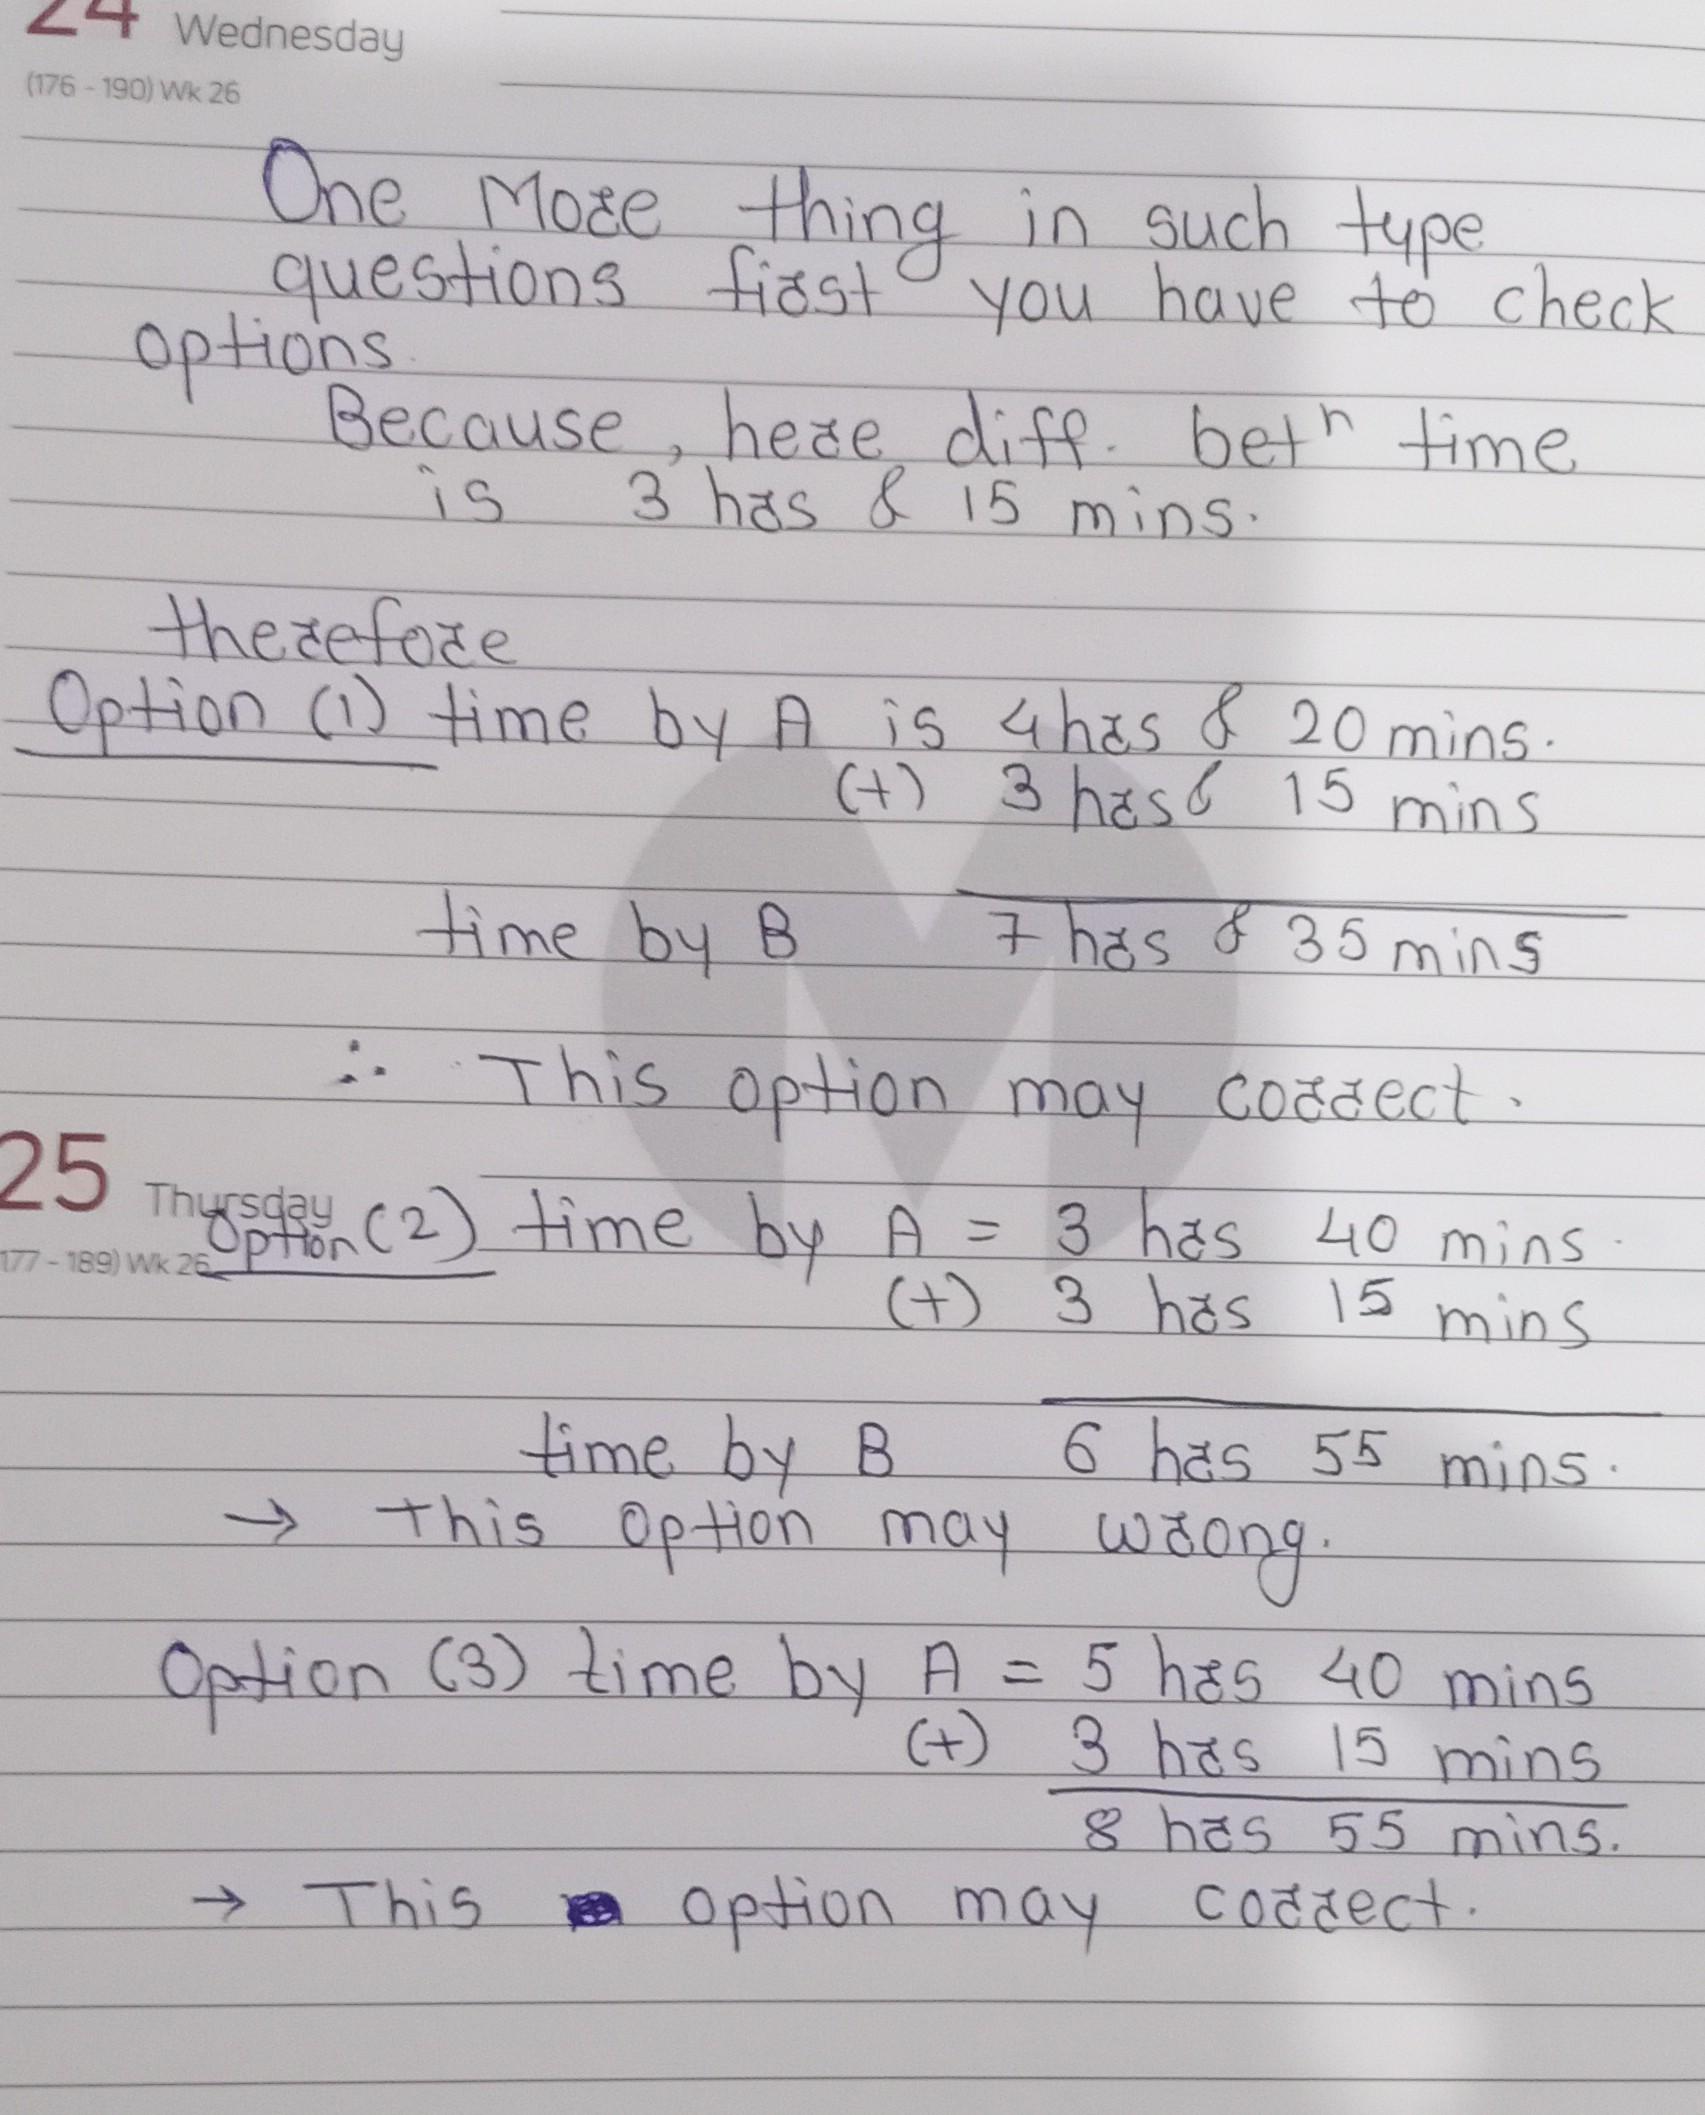 24 Wednesday
(176 - 190) Wk 26
One More thing in such type
questions first you have to check
options.
Because, here diff. betⁿ time
is 3 hrs & 15 mins.
therefore
Option (1) time by A is 4 hrs & 20 mins.
(+) 3 hrs & 15 mins
time by B 7 hrs & 35 mins
∴ This option may correct.
25 Thursday
177 - 189) Wk 26
Option (2) time by A = 3 hrs 40 mins.
(+) 3 hrs 15 mins
time by B 6 hrs 55 mins.
→ This option may wrong.
Option (3) time by A = 5 hrs 40 mins
(+) 3 hrs 15 mins
8 hrs 55 mins.
→ This option may correct.